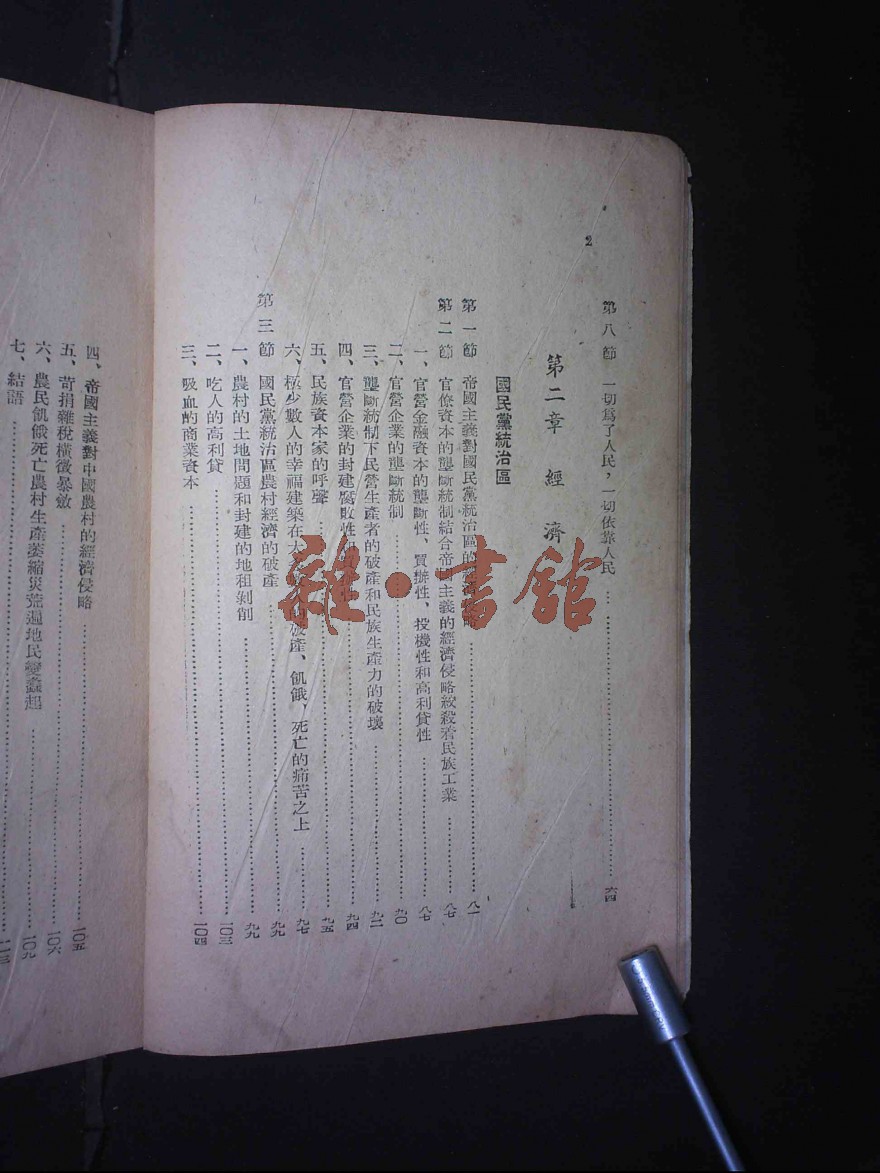 2
第八節 一切爲了人民，一切依靠人民 六四
第二章 經濟
國民黨統治區
第一節 帝國主義對國民黨統治區的經濟侵略 八一
第二節 官僚資本的壟斷統制結合帝國主義的經濟侵略絞殺着民族工業 八七
一、官營金融資本的壟斷性、買辦性、投機性和高利貸性 八七
二、官營企業的壟斷統制 九〇
三、壟斷統制下民營生產者的破產和民族生產力的破壞 九二
四、官營企業的封建腐敗性 九四
五、民族資本家的呼聲 九五
六、極少數人的幸福建築在大 破產、飢餓、死亡的痛苦之上 九七
第三節 國民黨統治區農村經濟的破產 九九
一、農村的土地問題和封建的地租剝削 九九
二、吃人的高利貸 一〇三
三、吸血的商業資本 一〇四
四、帝國主義對中國農村的經濟侵略 一〇五
五、苛捐雜稅橫徵暴斂 一〇六
六、農民飢餓死亡農村生產萎縮災荒遍地民變蠭起 一〇九
七、結語
雜·書館